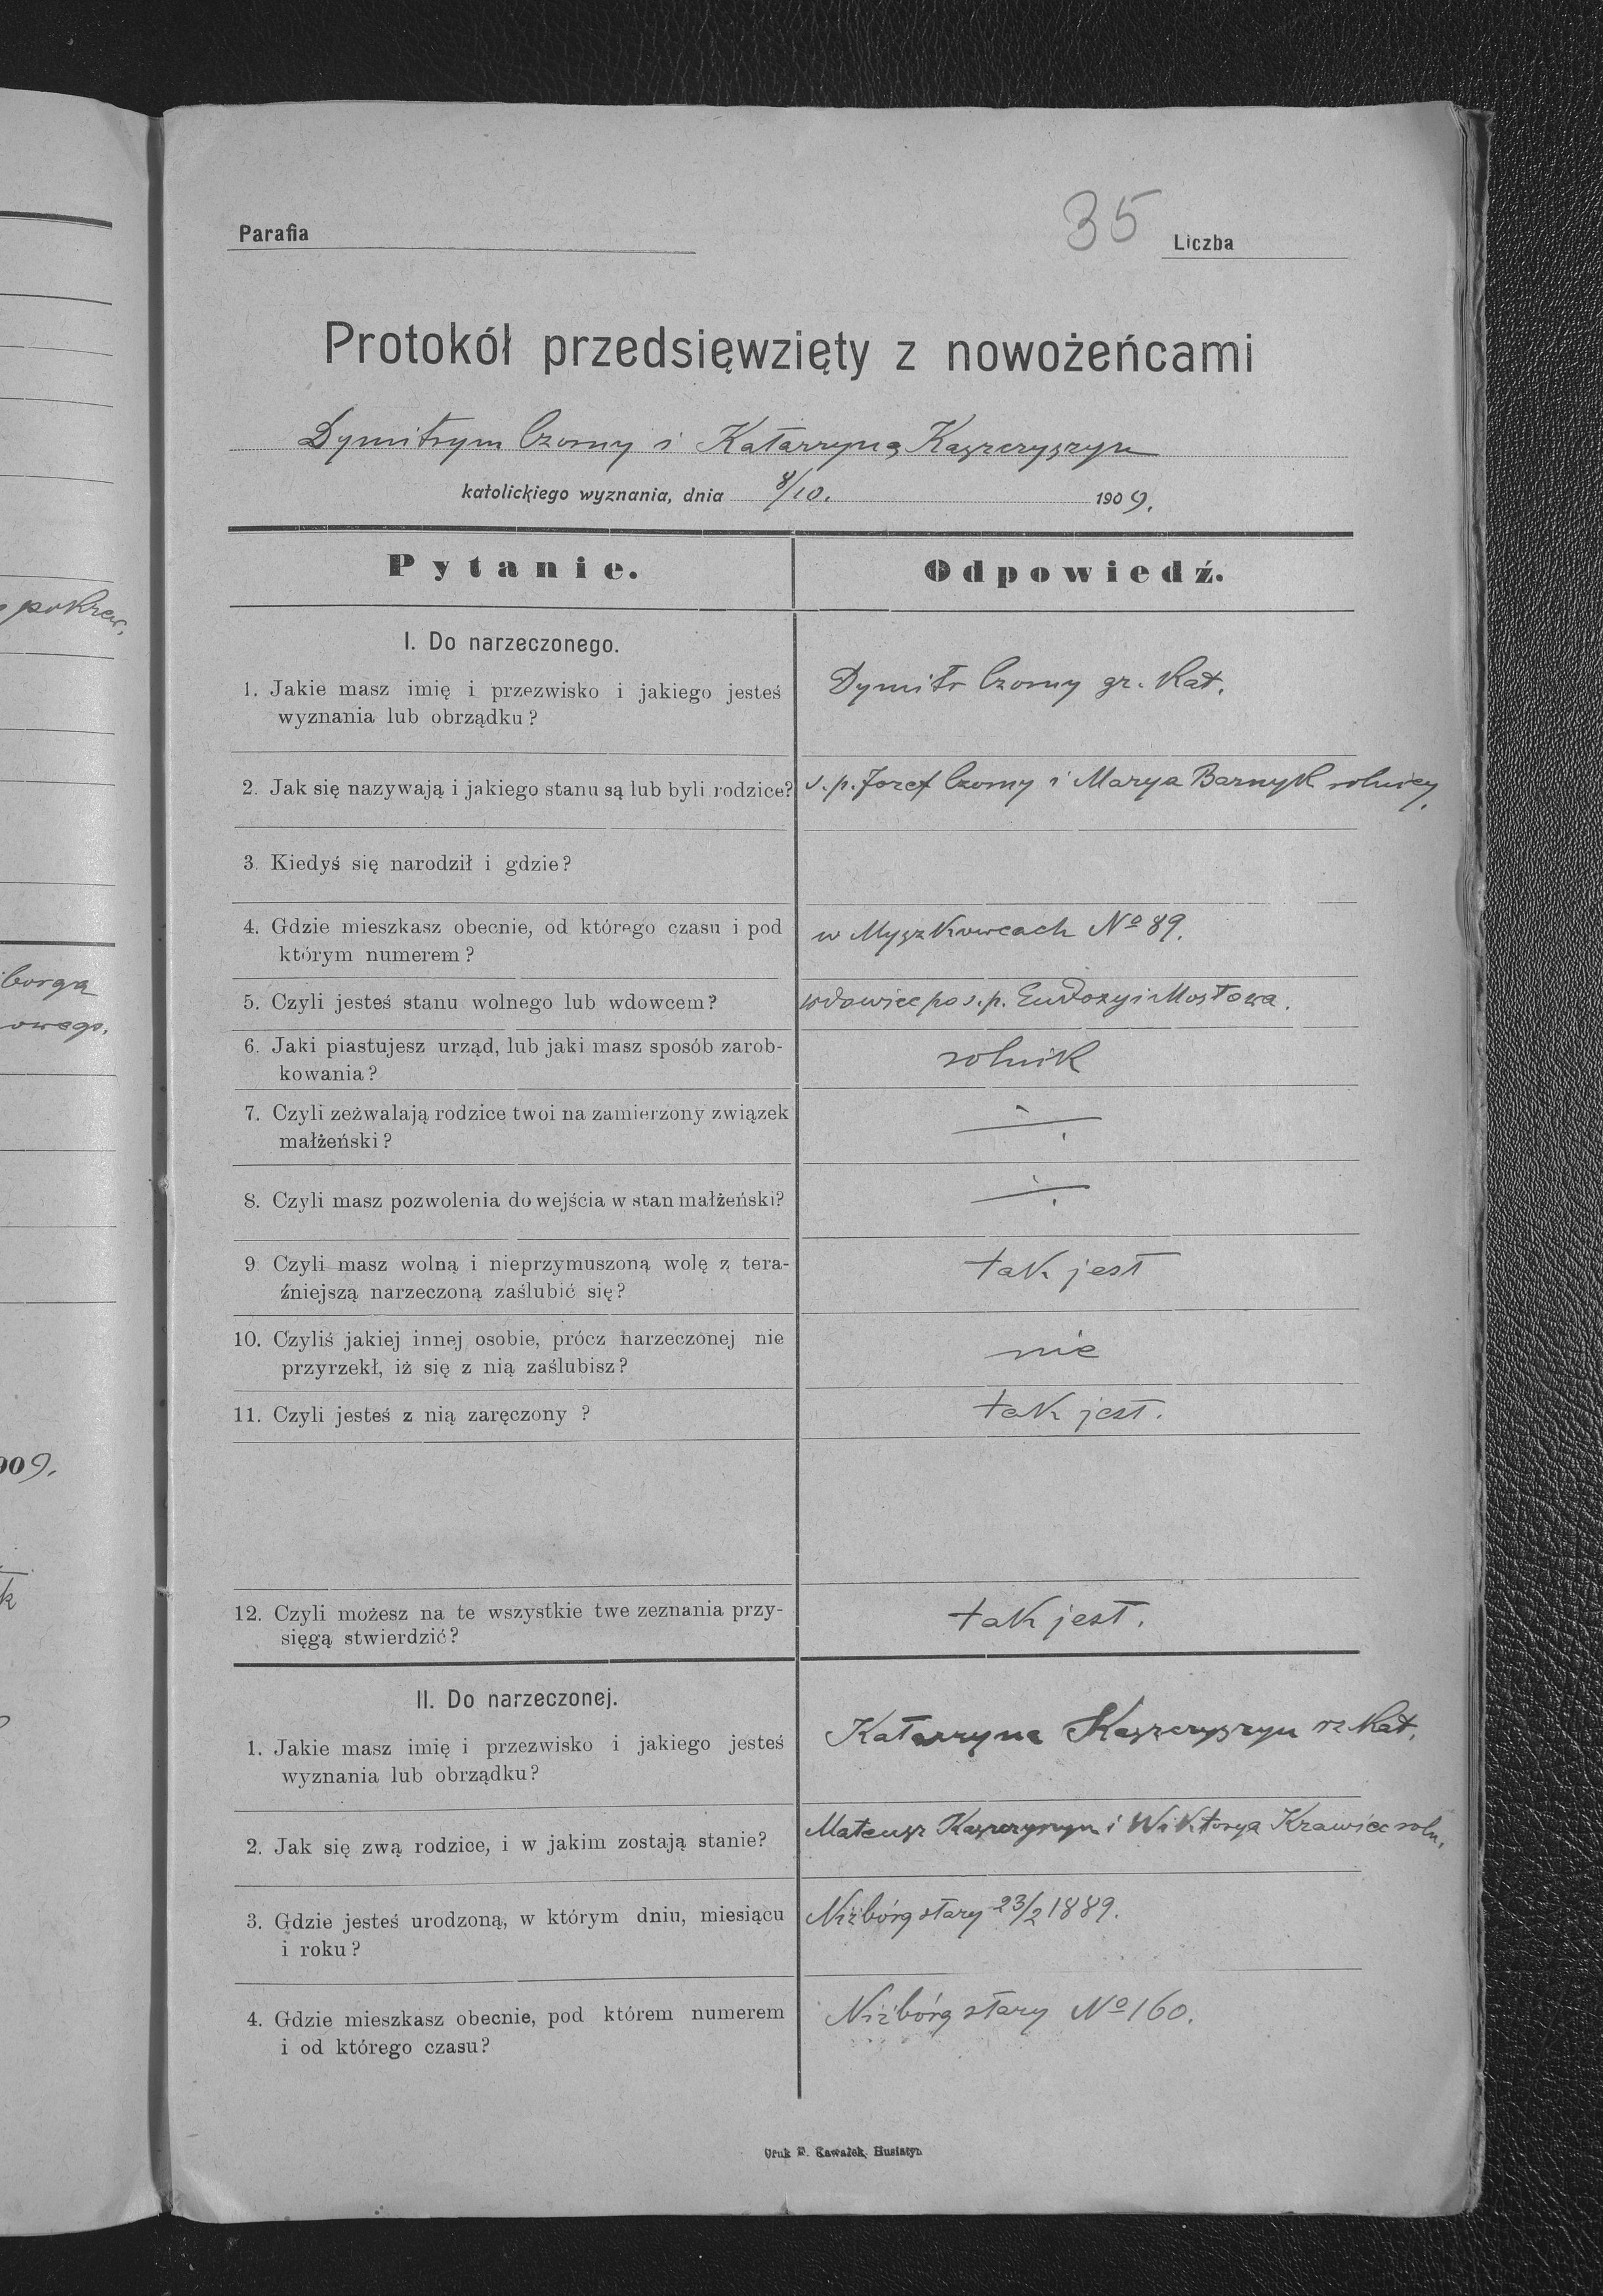 pokrew.
borga
owego.
909.
k
35
Parafia
Liczba
Protokół przedsięwzięty z nowożeńcami
Dymitrym Czorny i Katarzyną Kaszczyszyn
katolickiego wyznania, dnia 8/10. 1909.
Pytanie.
Odpowiedź.
I. Do narzeczonego.
1. Jakie masz imię i przezwisko i jakiego jesteś
wyznania lub obrządku?
Dymitr Czorny gr. kat.
2. Jak się nazywają i jakiego stanu są lub byli rodzice?
ś. p. Jozef Czorny i Marya Barnyk rolnicy.
3. Kiedyś się narodził i gdzie?
4. Gdzie mieszkasz obecnie, od którego czasu i pod
którym numerem?
w Myszkowcach No 89.
5. Czyli jesteś stanu wolnego lub wdowcem?
wdowiec po ś. p. Eudoxyi Mostowa.
6. Jaki piastujesz urząd, lub jaki masz sposób zarob-
kowania?
rolnik
7. Czyli zeżwalają rodzice twoi na zamierzony związek
małżeński?
8. Czyli masz pozwolenia do wejścia w stan małżeński?
9 Czyli masz wolną i nieprzymuszoną wolę z tera-
źniejszą narzeczoną zaślubić się?
tak jest
10. Czyliś jakiej innej osobie, prócz narzeczonej nie
przyrzekł, iż się z nią zaślubisz?
nie
11. Czyli jesteś z nią zaręczony ?
tak jest.
12. Czyli możesz na te wszystkie twe zeznania przy-
sięgą stwierdzić?
tak jest.
II. Do narzeczonej.
1. Jakie masz imię i przezwisko i jakiego jesteś
wyznania lub obrządku?
Katarzyna Kaszczyszyn rz kat.
2. Jak się zwą rodzice, i w jakim zostają stanie?
Mateusz Kaszczyszyn i Wiktorya Krawiec roln.
3. Gdzie jesteś urodzoną, w którym dniu, miesiącu
i roku?
Niżbórg stary 23/2 1889.
4. Gdzie mieszkasz obecnie, pod którem numerem
i od którego czasu?
Niżbórg stary No 160.
Druk E. Kawałek, Husiatyn